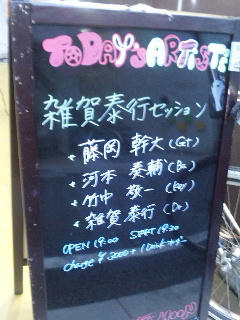 TODAY'S ARTIST
雑賀泰行セッション
• 藤岡 幹大 (Gt)
• 河本 奏輔 (Ba)
• 竹中 敬一 (Key)
• 雑賀 泰行 (Dr)
OPEN 19:00 START 19:30
charge ¥3000 + 1 Drink オーダー